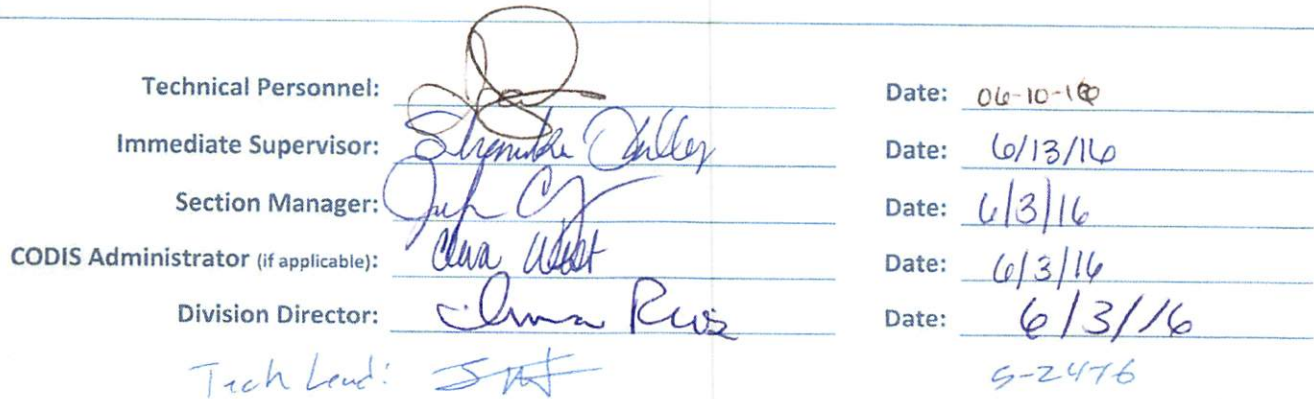 Technical Personnel: Date: 06-10-16
Immediate Supervisor: Date: 6/13/16
Section Manager: Date: 6/3/16
CODIS Administrator (if applicable): West Date: 6/3/16
Division Director: Irma Rios Date: 6/3/16
Tech Lead: